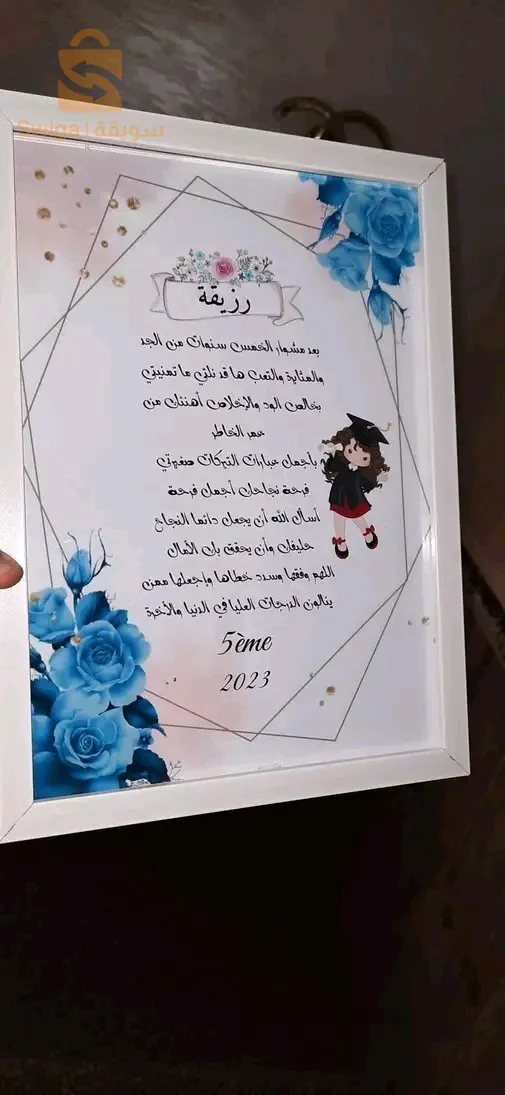 سويقة | Swiga
رزيقة
بعد مشوار الخمس سنوات من الجد
والمثابرة والتعب ها قد نلتي ما تمنيتي
بخالص الود والإخلاص أهنئك من
عمر الخاطر
بأجمل عبارات التبركات صغيرتي
فرحة نجاحك أجمل فرحة
أسأل الله أن يجعل دائما النجاح
حليفك وأن يحقق بك الأمال
اللهم وفقها وسدد خطاها وإجعلها ممن
ينالون الدرجات العليا في الدنيا والأخرة
5ème
2023